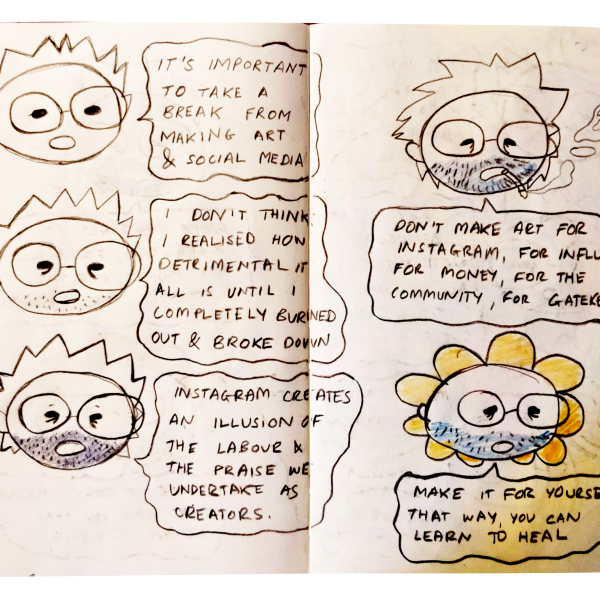 IT'S IMPORTANT
TO TAKE A
BREAK FROM
MAKING ART
& SOCIAL MEDIA
I DON'T THINK
I REALISED HOW
DETRIMENTAL IT
ALL IS UNTIL I
COMPLETELY BURNED
OUT & BROKE DOWN
INSTAGRAM CREATES
AN ILLUSION OF
THE LABOUR &
THE PRAISE WE
UNDERTAKE AS
CREATORS.
DON'T MAKE ART FOR
INSTAGRAM, FOR INFLU
FOR MONEY, FOR THE
COMMUNITY, FOR GATEKE
MAKE IT FOR YOURSE
THAT WAY, YOU CAN
LEARN TO HEAL